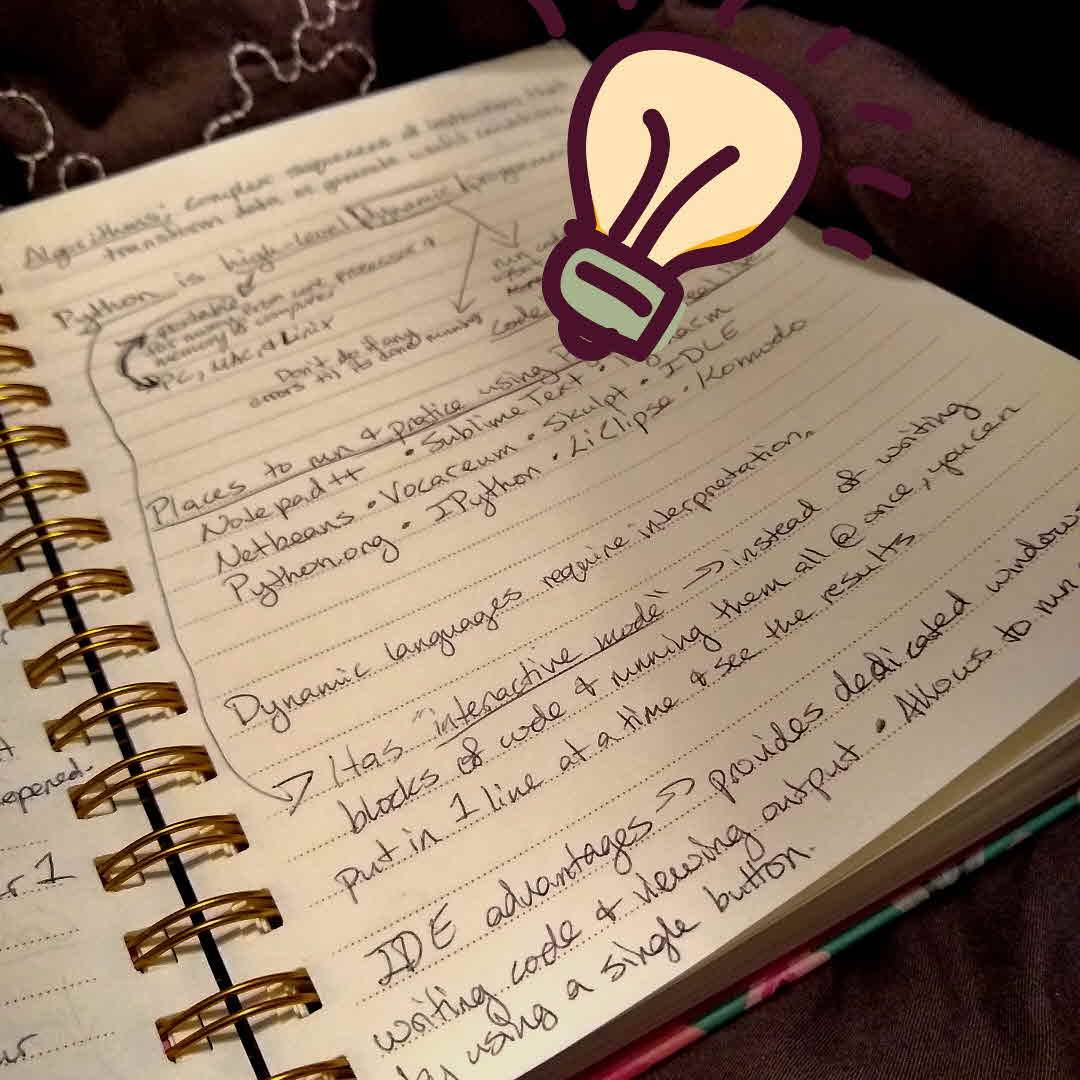 Algorithms: complex sequences of instructions that
transform data or generate useful
Python is high-level dynamic
portable
memory of computer
PC, MAC, & Linix
Don't do if any
errors til its done running
run
code
Places to run & pratice using
Notepad++ • Sublime Text •
Netbeans • Vocareum • Skulpt • IDLE
Python.org • IPython • LiClipse • Komodo
Dynamic languages require interpretation.
Has "interactive mode" >> instead of writing
blocks of code & running them all @ once, you can
put in 1 line at a time & see the results
IDE advantages >> provides dedicated windows
writing code & viewing output • Allows to run
by using a single button.
epened.
r 1
ur